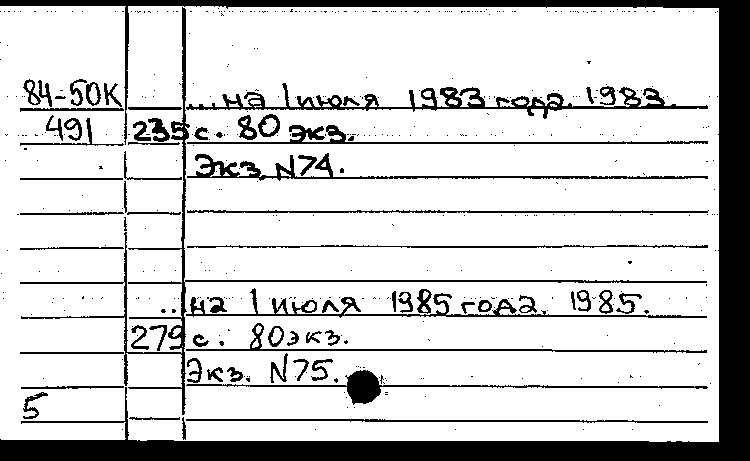 84-50К ...на 1 июля 1983 года. 1983.
491 235 с. 80 экз.
Экз. N74.
...на 1 июля 1985 года. 1985.
279 с. 80 экз.
Экз. N75.
5